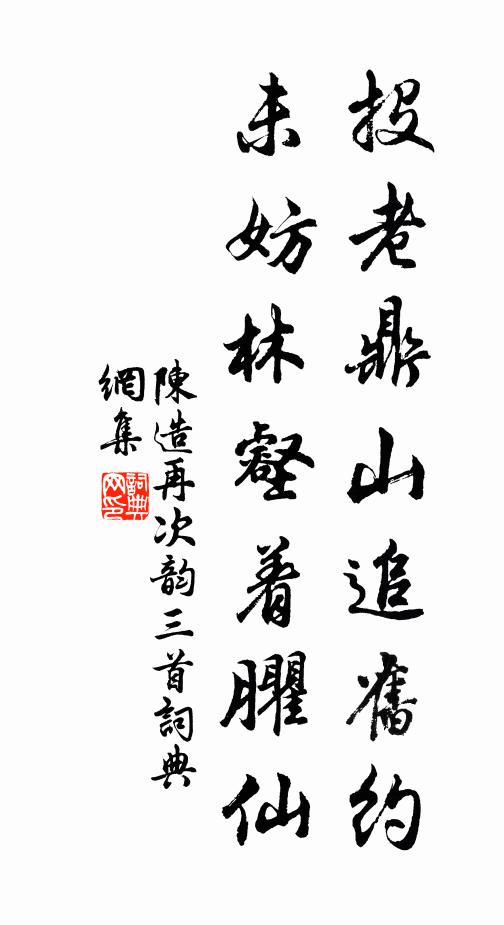 投老鼎山追舊約
未妨林壑着臞仙
陳造再次韵三首詞典
網集
詞典
网印